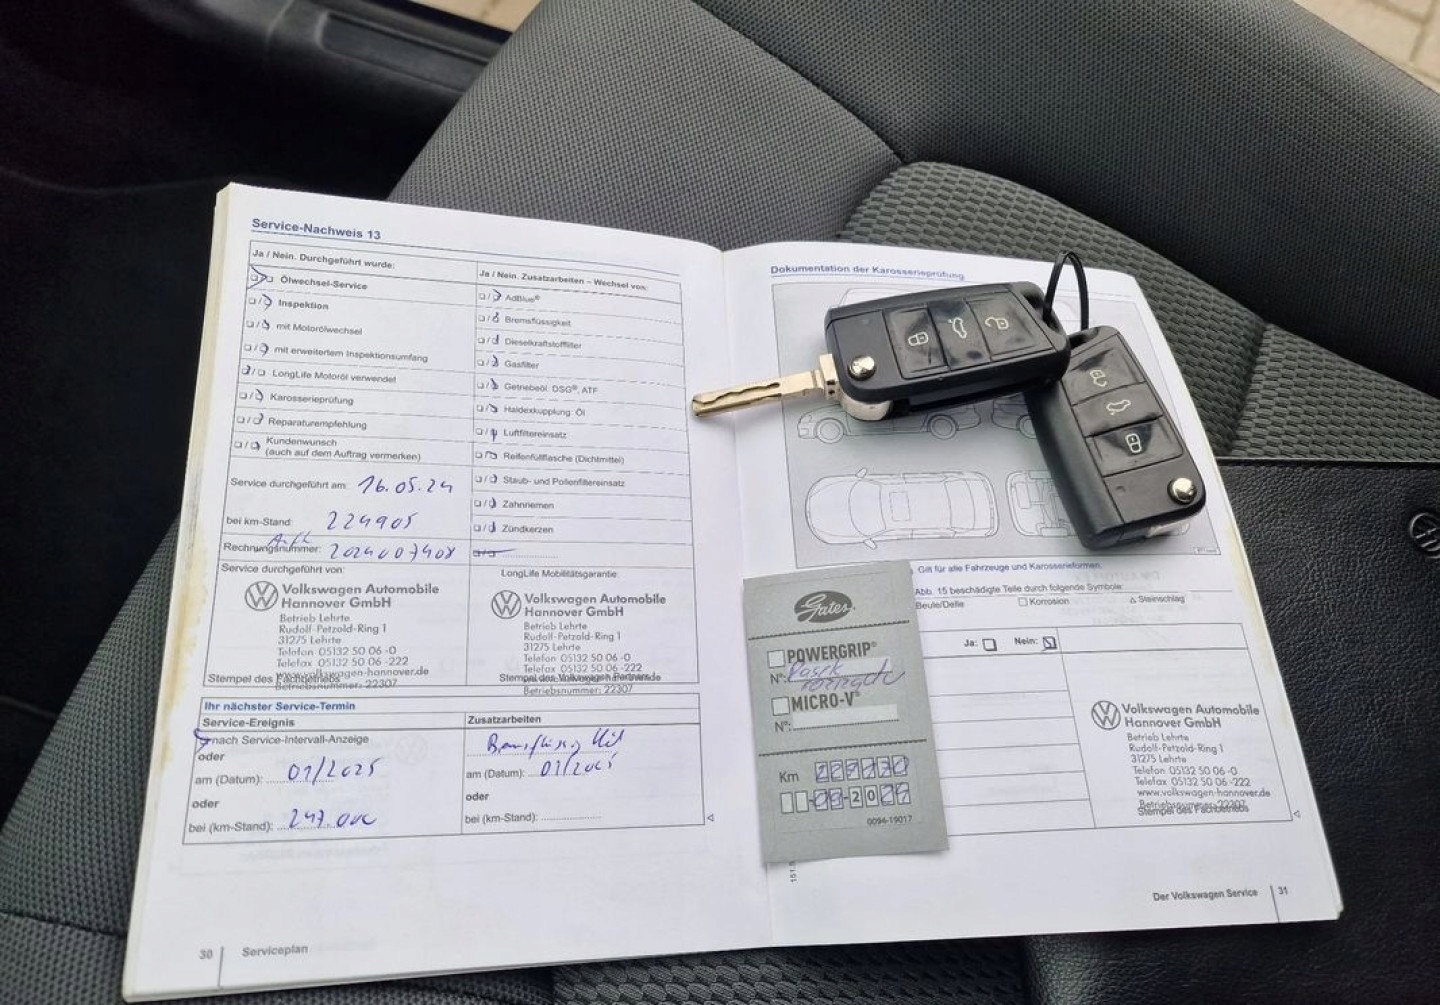 Service-Nachweis 13
Ja / Nein. Durchgeführt wurde:
Ölwechsel-Service
Inspektion
mit Motorölwechsel
mit erweitertem Inspektionsumfang
LongLife Motoröl verwendet
Karosserieprüfung
Reparaturempfehlung
Kundenwunsch
(auch auf dem Auftrag vermerken)
Service durchgeführt am: 16.05.24
bei km-Stand: 224905
Rechnungsnummer: 2024007408
Service durchgeführt von:
Volkswagen Automobile
Hannover GmbH
Betrieb Lehrte
Rudolf-Petzold-Ring 1
31275 Lehrte
Telefon 05132 50 06 -0
Telefax 05132 50 06 -222
www.volkswagen-hannover.de
Betriebsnummer: 22307
Stempel des Fachbetriebs
Ja / Nein. Zusatzarbeiten – Wechsel von:
AdBlue®
Bremsflüssigkeit
Dieselkraftstofffilter
Gasfilter
Getriebeöl: DSG®, ATF
Haldexkupplung: Öl
Luftfiltereinsatz
Reifenfüllflasche (Dichtmittel)
Staub- und Pollenfiltereinsatz
Zahnriemen
Zündkerzen
LongLife Mobilitätsgarantie:
Volkswagen Automobile
Hannover GmbH
Betrieb Lehrte
Rudolf-Petzold-Ring 1
31275 Lehrte
Telefon 05132 50 06 -0
Telefax 05132 50 06 -222
Stempel des Volkswagen Partners
Betriebsnummer: 22307
Ihr nächster Service-Termin
Service-Ereignis
nach Service-Intervall-Anzeige
oder
am (Datum): 01/2025
oder
bei (km-Stand): 247.000
Zusatzarbeiten
am (Datum): 01/2025
oder
bei (km-Stand):
30 Serviceplan
Dokumentation der Karosserieprüfung
Gilt für alle Fahrzeuge und Karosserieformen.
Abb. 15 beschädigte Teile durch folgende Symbole:
Beule/Delle Korrosion Steinschlag
Ja: Nein:
Volkswagen Automobile
Hannover GmbH
Betrieb Lehrte
Rudolf-Petzold-Ring 1
31275 Lehrte
Telefon 05132 50 06 -0
Telefax 05132 50 06 -222
www.volkswagen-hannover.de
Betriebsnummer: 22307
Stempel des Fachbetriebs
Der Volkswagen Service 31
Gates
POWERGRIP®
N°: Pasek
MICRO-V®
N°:
Km
2024
0094-19017